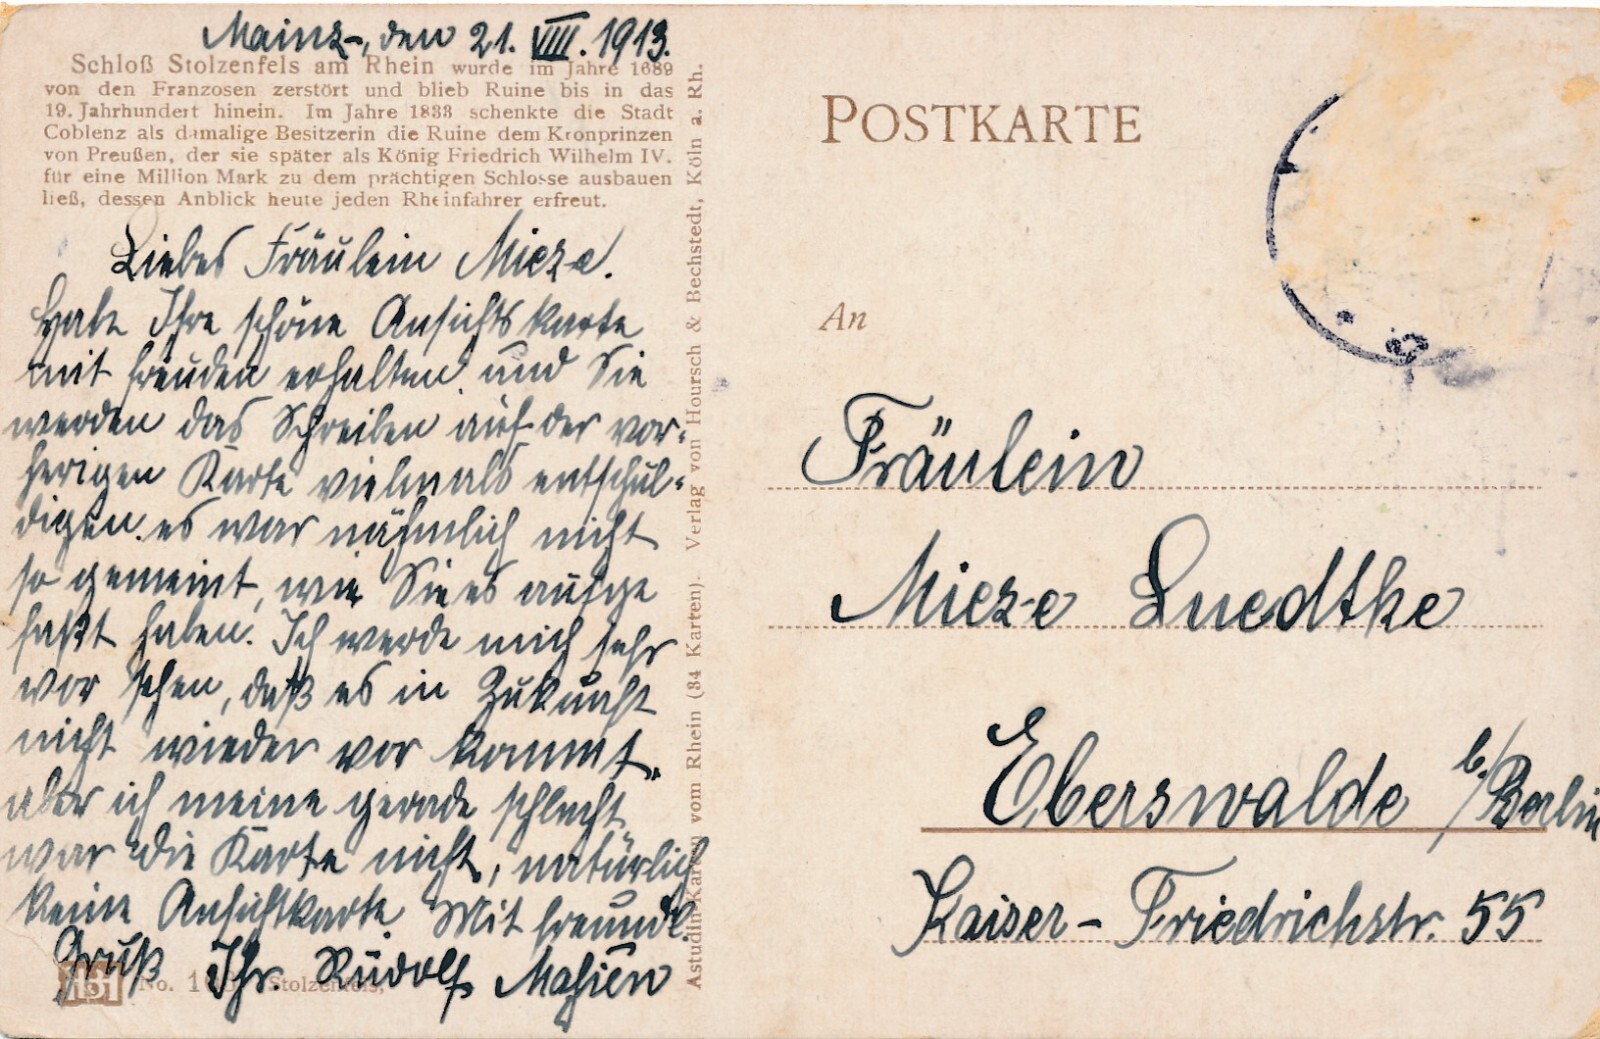 Mainz, den 21. VIII. 1913.
Schloß Stolzenfels am Rhein wurde im Jahre 1689
von den Franzosen zerstört und blieb Ruine bis in das
19. Jahrhundert hinein. Im Jahre 1833 schenkte die Stadt
Coblenz als damalige Besitzerin die Ruine dem Kronprinzen
von Preußen, der sie später als König Friedrich Wilhelm IV.
für eine Million Mark zu dem prächtigen Schlosse ausbauen
ließ, dessen Anblick heute jeden Rheinfahrer erfreut.
Liebes Fräulein Mieze.
Habe Ihre schöne Ansichtskarte
mit freuden erhalten. und Sie
werden das Schreiben auf der vor-
herigen Karte vielmals entschul-
digen. es war nähmlich nicht
so gemeint, wie Sie es aufge
faßt haben. Ich werde mich sehr
vor sehen, daß es in Zukunft
nicht wieder vor kommt.
aber ich meine gerade schlecht
war die Karte nicht, natürlich
keine Ansichtkarte. Mit freundl.
Gruß Ihr. Rudolf
No. Stolzenfels,
Astudin-Karten vom Rhein (34 Karten). Verlag von Hoursch & Bechstedt, Köln a. Rh.
POSTKARTE
An
Fräulein
Mieze Luedtke
Eberswalde b/Berlin
Kaiser-Friedrichstr. 55